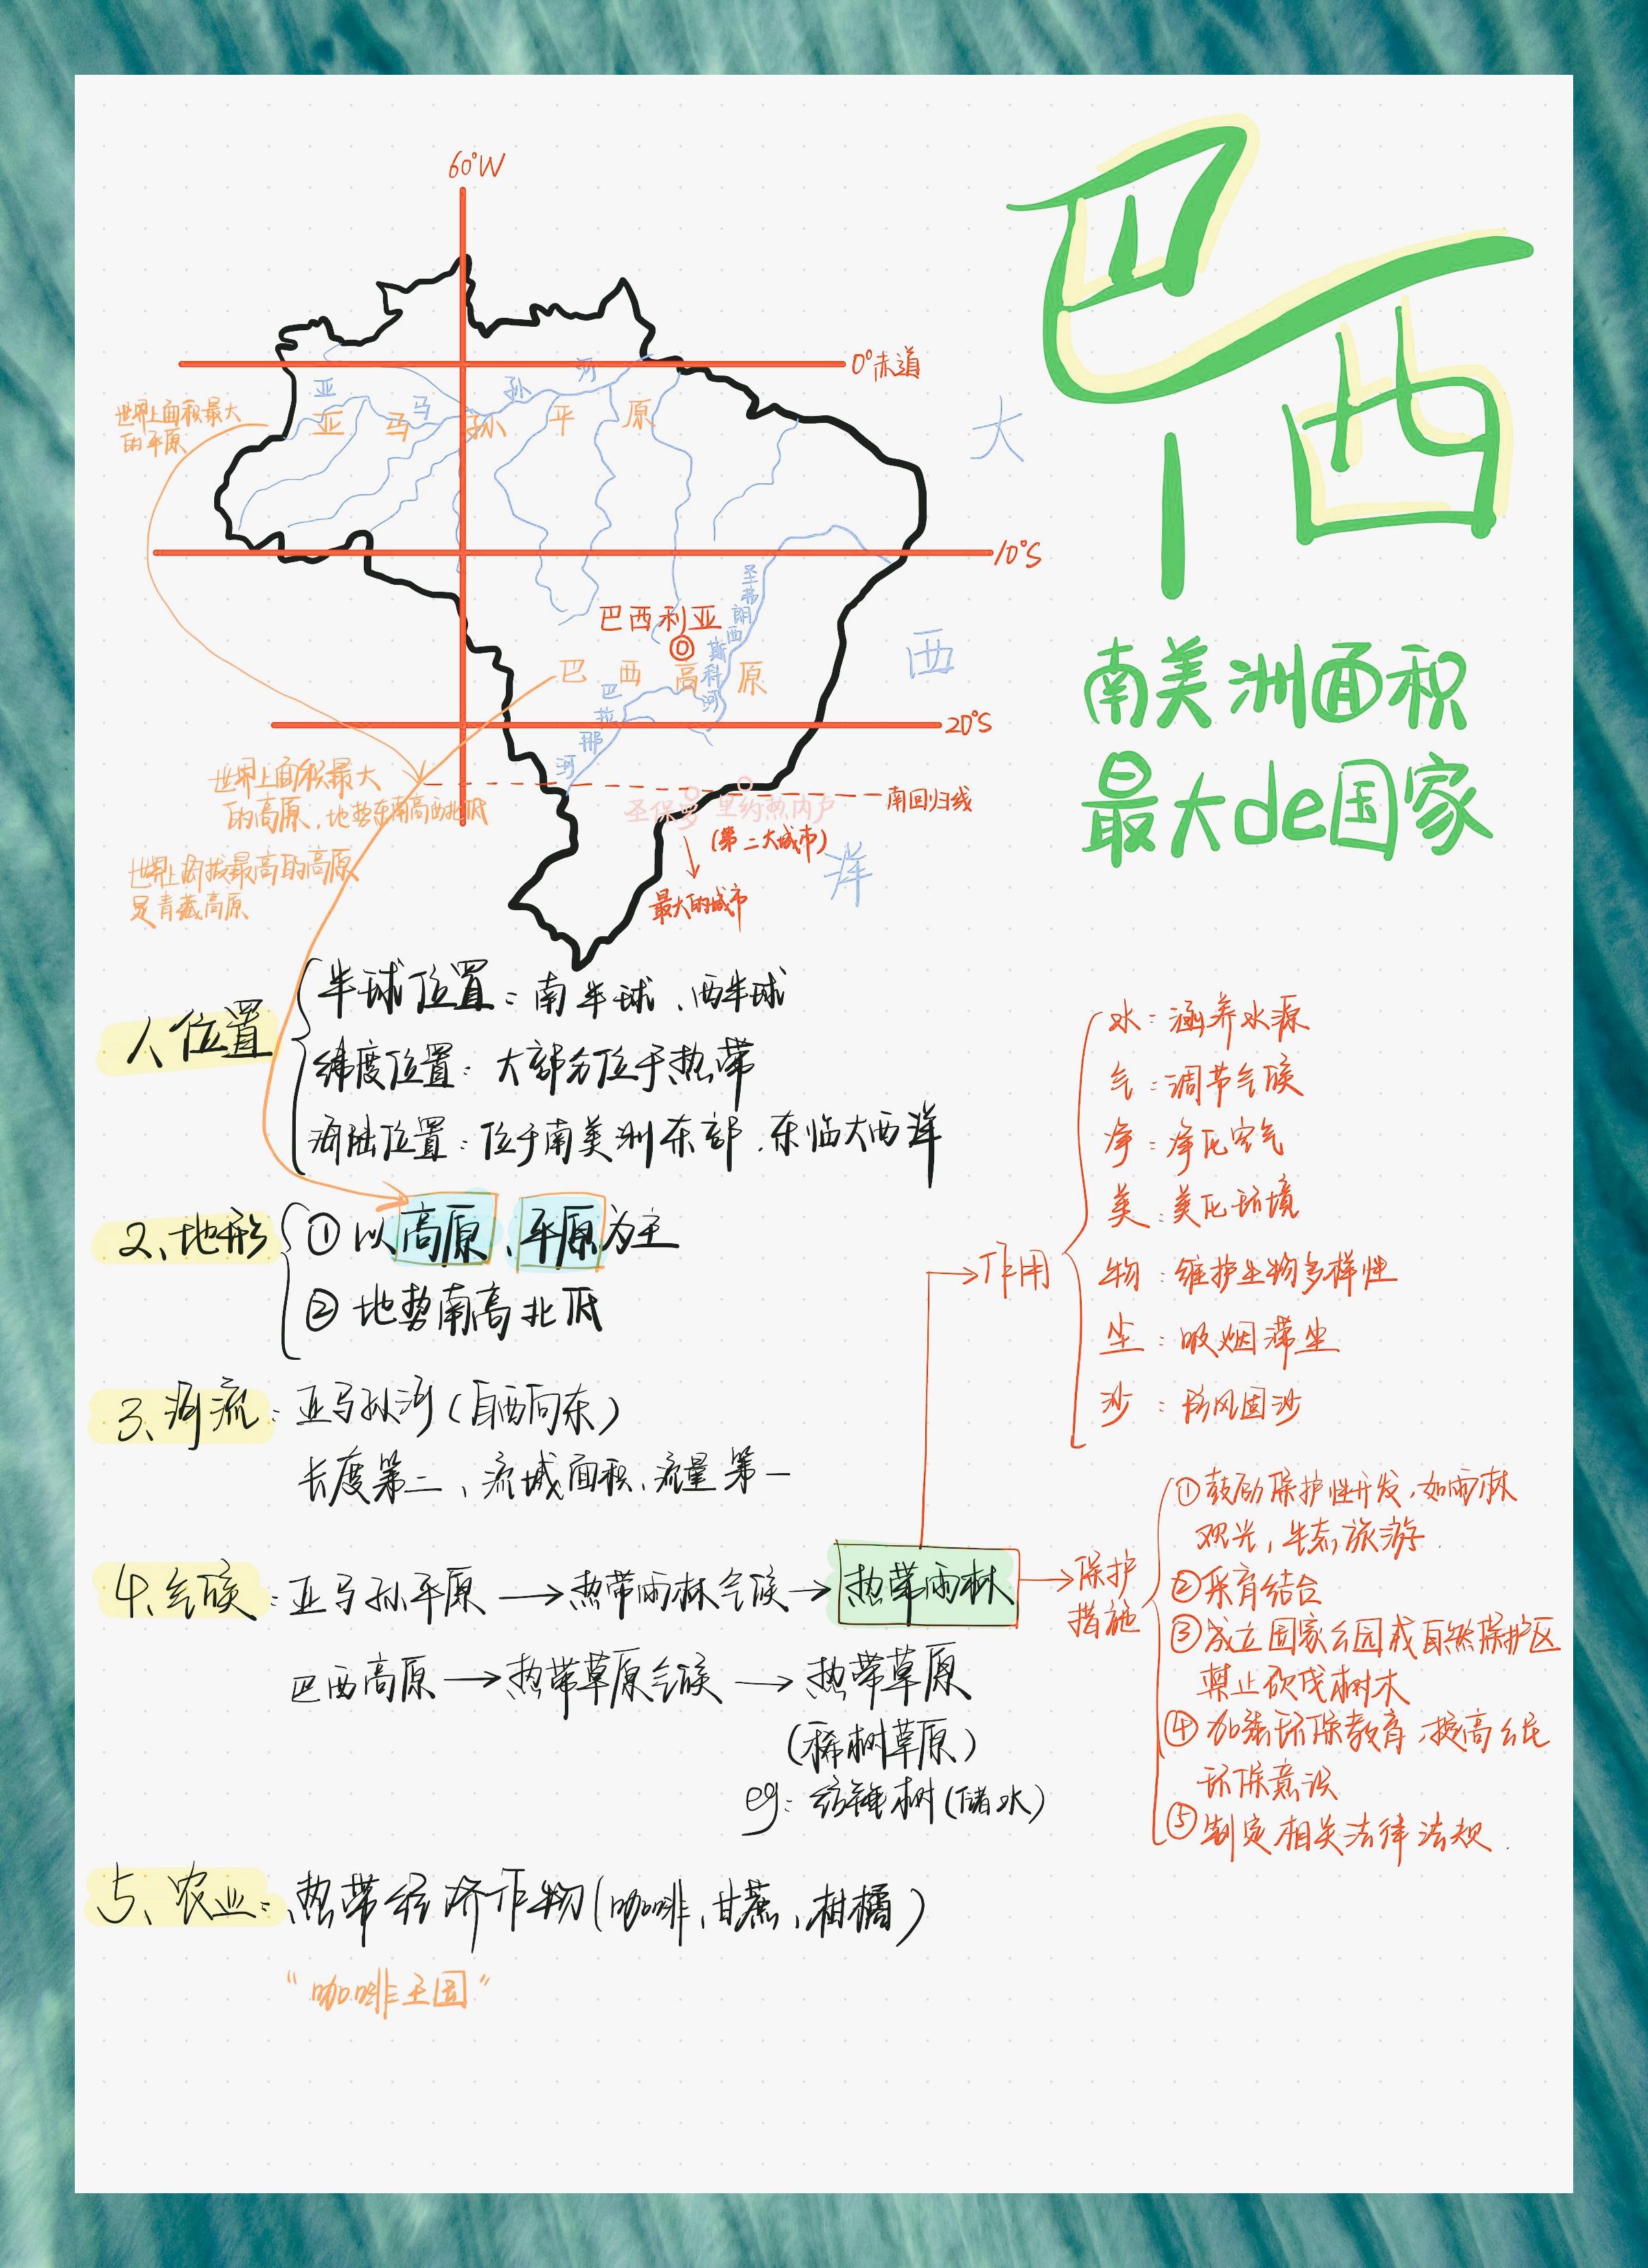 巴西
南美洲面积
最大de国家
60°W
0°赤道
10°S
20°S
南回归线
世界上面积最大
的平原
亚马孙河
亚马孙平原
大西洋
巴西利亚
圣弗朗西斯科河
巴西高原
巴拉那河
世界上面积最大
的高原,地势东南高西北低
世界上海拔最高的高原
是青藏高原
圣保罗
里约热内卢
(第二大城市)
最大的城市
1、位置
半球位置:南半球、西半球
纬度位置:大部分位于热带
海陆位置:位于南美洲东部,东临大西洋
2、地形
①以高原、平原为主
②地势南高北低
3、河流:亚马孙河(自西向东)
长度第二、流域面积、流量第一
4、气候:亚马孙平原→热带雨林气候→热带雨林
巴西高原→热带草原气候→热带草原
(稀树草原)
eg:纺锤树(储水)
作用
水:涵养水源
气:调节气候
净:净化空气
美:美化环境
物:维护生物多样性
尘:吸烟滞尘
沙:防风固沙
保护
措施
①鼓励保护性开发,如雨林
观光,生态旅游.
②采育结合
③成立国家公园或自然保护区
禁止砍伐树木
④加强环保教育,提高公民
环保意识
⑤制定相关法律法规.
5、农业:热带经济作物(咖啡、甘蔗、柑橘)
“咖啡王国”